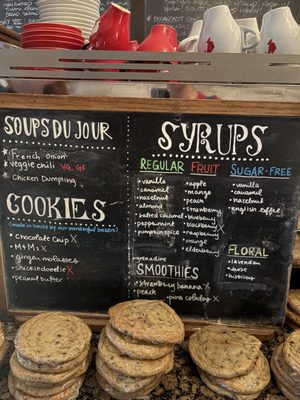 SOUPS DU JOUR
* French Onion
* veggie chili VG, GF
* Chicken Dumpling
COOKIES
(made in house by our wonderful bakers)
• chocolate chip X
• M+Ms X
• ginger molasses
• snickerdoodle X
• peanut butter
SYRUPS
REGULAR
• vanilla
• caramel
• hazelnut
• almond
• salted caramel
• peppermint
• pumpkin spice
• grenadine
FRUIT
• apple
• mango
• peach
• strawberry
• blueberry
• blackberry
• raspberry
• orange
• elderberry
SUGAR-FREE
• vanilla
• caramel
• hazelnut
• english toffee
FLORAL
• lavender
• rose
• hibiscus
SMOOTHIES
• strawberry banana X
• peach
• pina colada X